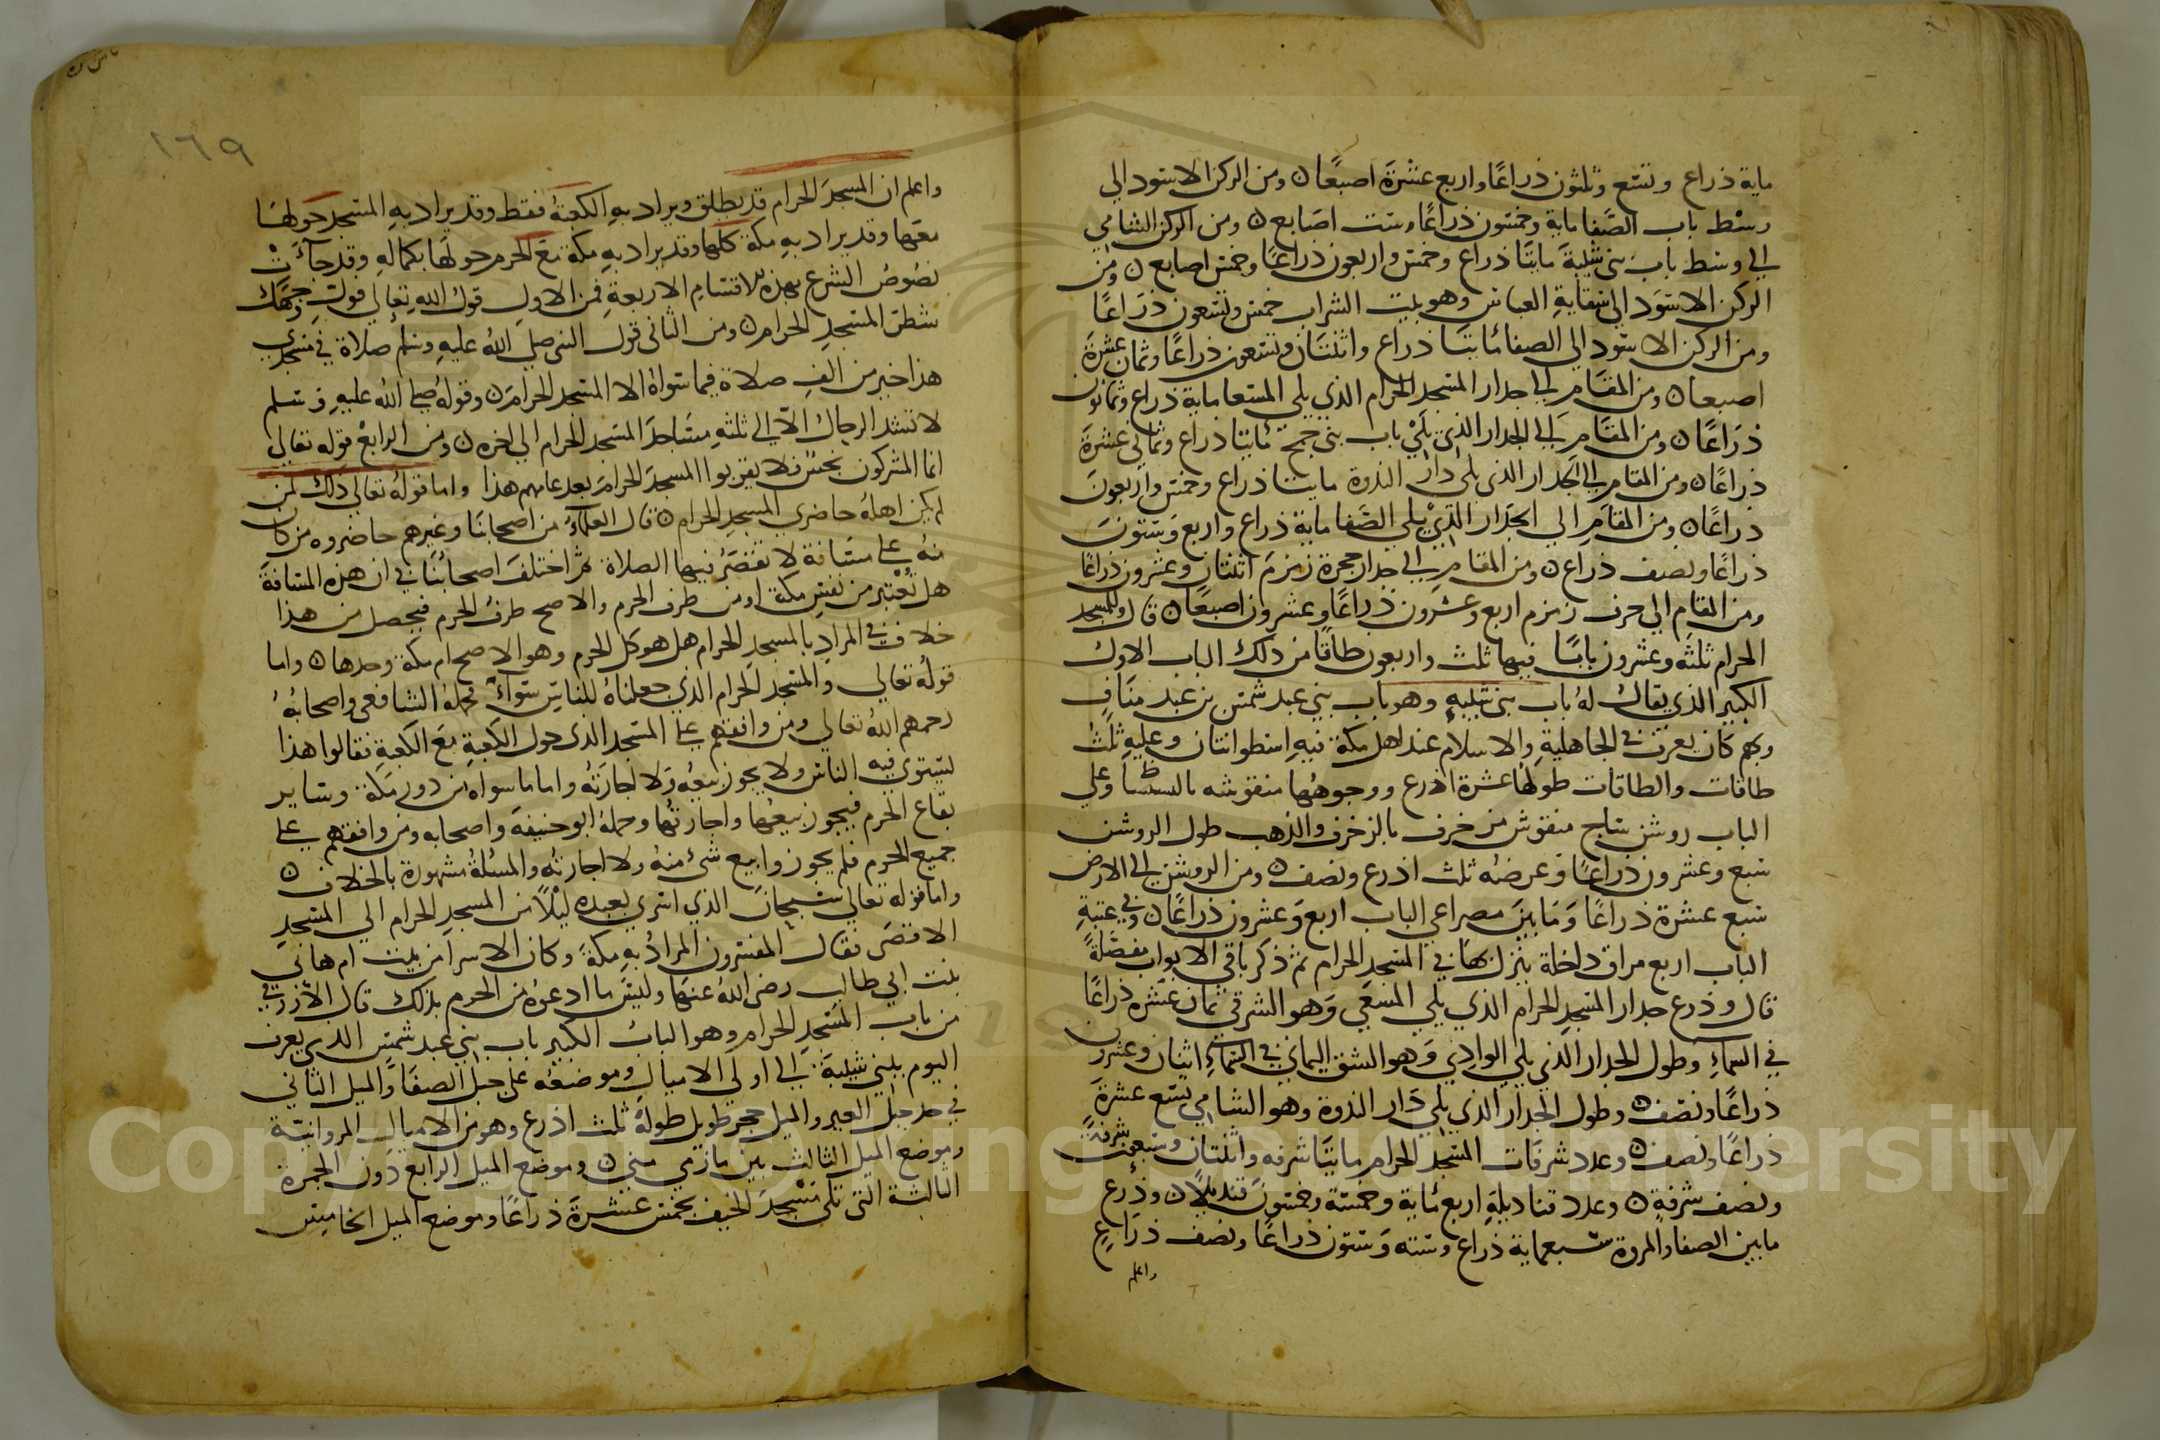 ماية ذراع وتسع وثلثون ذراعًا واربع عشرة اصبعًا ه ومن الركن الاسود الى
وسْط باب الصَّفا ماية وخمسون ذراعًا وست اصابع ه ومن الركن الشامي
الي وسط باب بنى شيبة مايتا ذراع وخمس واربعون ذراعًا وخمس اصابع ه ومن
الركن الاسود الي سقاية العباس وهو بيت الشراب خمس وتسعون ذراعًا
ومن الركن الاسود الي الصفا مايتا ذراع واثنتان وتسعون ذراعًا وثمان عشرة
اصبعا ه ومن المقام الي جدار المسجد الحرام الذي يلي المسعا ماية ذراع وثمانون
ذراعًا ه ومن المقام الي الجدار الذي يلي باب بنى جمح مايتا ذراع وثماني عشرة
ذراعًا ه ومن المقام الي الجدار الذي يلي دار الندوة مايتا ذراع وخمس واربعون
ذراعًا ه ومن المقام الي الجدار الذي يلي الصَّفا ماية ذراع واربع وستون
ذراعًا ونصف ذراع ه ومن المقام الي جدار حجرة زمزم اثنتان وعشرون ذراعًا
ومن المقام الي حرف زمزم اربع وعشرون ذراعًا وعشرون اصبعًا ه قال وللمسجد
الحرام ثلثه وعشرون بابًا فيها ثلث واربعون طاقًا من ذلك الباب الاول
الكبير الذي يقال له باب بنى شيبه وهو باب بني عبد شمس بن عبد مناف
وبهم كان يعرف في الجاهلية والاسلام عند اهل مكة فيه اسطوانتان وعليه ثلث
طاقات والطاقات طولها عشرة اذرع ووجوهها منقوشه وعلي
الباب روشن ساج منقوش مزخرف بالزخرف والذهب طول الروشن
سبع وعشرون ذراعًا وعرضه ثلث اذرع ونصف ه ومن الروشن الي الارض
سبع عشرة ذراعًا وما بين مصراعي الباب اربع وعشرون ذراعًا ه وفي عتبة
الباب اربع مراق داخلة ينزل بها في المسجد الحرام ثم ذكر باقي الابواب مفصّلةً
قال وذرع جدار المسجد الحرام الذي يلي المسعى وهو الشرقي ثمان عشرة ذراعًا
في السماء وطول الجدار الذي يلي الوادي وهو الشق اليماني في السماء اثنان وعشرون
ذراعًا ونصف ه وطول الجدار الذي يلي دار الندوة وهو الشامي تسع عشرة
ذراعًا ونصف ه وعدد شرفات المسجد الحرام مايتا شرفه واثنتان وسبعون شرفةً
ونصف شرفةٍ ه وعدد قناديله اربع ماية وخمسة وخمسون قنديلًا ه وذرع
ما بين الصفا والمروة سبعماية ذراع وسته وستون ذراعًا ونصف ذراعٍ
واعلم
١٦٩
واعلم ان المسجد الحرام قد يطلق ويراد به الكعبة فقط وقد يراد به المسجد حولها
معها وقد يراد به مكة كلها وقد يراد به مكة مع الحرم حولها بكماله وقد جآت
نصوص الشرع بهذه الاقسام الاربعة فمن الاول قول الله تعالي فول وجهك
شطر المسجد الحرام ه ومن الثاني قول النبي صلي الله عليه وسلم صلاة في مسجدي
هذا خير من الف صلاة فيما سواه الا المسجد الحرام ه وقوله صلى الله عليه وسلم
لا تشد الرحال الّا الي ثلثه مساجد المسجد الحرام الي اخره ه ومن الرابع قوله تعالي
انما المشركون نجس فلا يقربوا المسجد الحرام بعد عامهم هذا واما قوله تعالي ذلك لمن
لم يكن اهله حاضري المسجد الحرام ه قال العلماء من اصحابنا وغيرهم حاضروه من كان
منه على مسافة لا تقصر فيها الصلاة ثم اختلف اصحابنا في ان هذه المسافة
هل تعتبر من نفس مكة او من طرف الحرم والاصح طرف الحرم فيحصل من هذا
خلاف في المراد بالمسجد الحرام هل هو كل الحرم وهو الاصح ام مكة وحدها ه واما
قوله تعالي والمسجد الحرام الذي جعلناه للناس سواء فحمله الشافعي واصحابه
رحمهم الله تعالي ومن وافقهم على المسجد الذى حول الكعبة مع الكعبة فقالوا هذا
يستوي فيه الناس ولا يجوز بيعه ولا اجارته واما ما سواه من دور مكة وساير
بقاع الحرم فيجوز بيعها واجارتها وحمله ابو حنيفة واصحابه ومن وافقهم على
جميع الحرم فلم يجوزوا بيع شئ منه ولا اجارته والمسئلة مشهورة بالخلاف ه
واما قوله تعالي سبحان الذي اسري بعبده ليلًا من المسجد الحرام الي المسجد
الاقصى فقال المفسرون المراد به مكة وكان الاسرا من بيت ام هاني
بنت ابي طالب رضي الله عنها وليس ما ادعوه من الحرم بذلك قال الازرقي
من باب المسجد الحرام وهو الباب الكبير باب بني عبد شمس الذي يعرف
اليوم ببني شيبة الي اولي الاميال وموضعه على جبل الصفا والميل الثاني
في حد جبل العير والميل حجر طويل طوله ثلث اذرع وهو من الاميال المروانية
وموضع الميل الثالث بين مازمي منى ه وموضع الميل الرابع دون الجمرة
الثالثة التى تلى مسجد الخيف بخمس عشرة ذراعًا وموضع الميل الخامس
Copyright © King Saud University